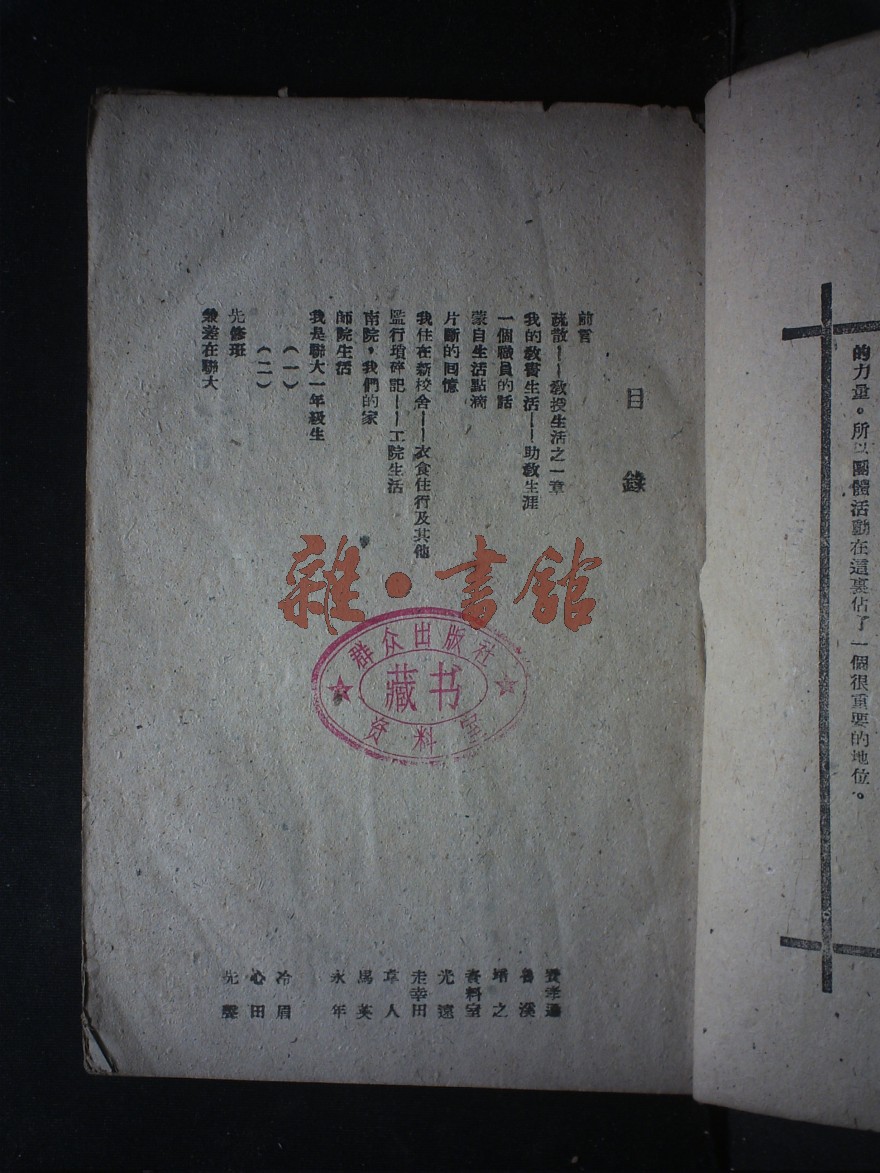 的力量。所以團體活動在這裏佔了一個很重要的地位。
目錄
前言
疏散——教授生活之一章 費孝通
我的教書生活——助教生涯 魯溪
一個職員的話 靖之
蒙自生活點滴 資料室
片斷的回憶 光遠
我住在新校舍——衣食住行及其他 走幸田
監行瑣碎記——工院生活 草人
南院，我們的家 馬英
師院生活 永年
我是聯大一年級生
（一） 冷眉
（二） 心田
先修班 先聲
兼差在聯大
雜·書館
群众出版社
藏书
资料室